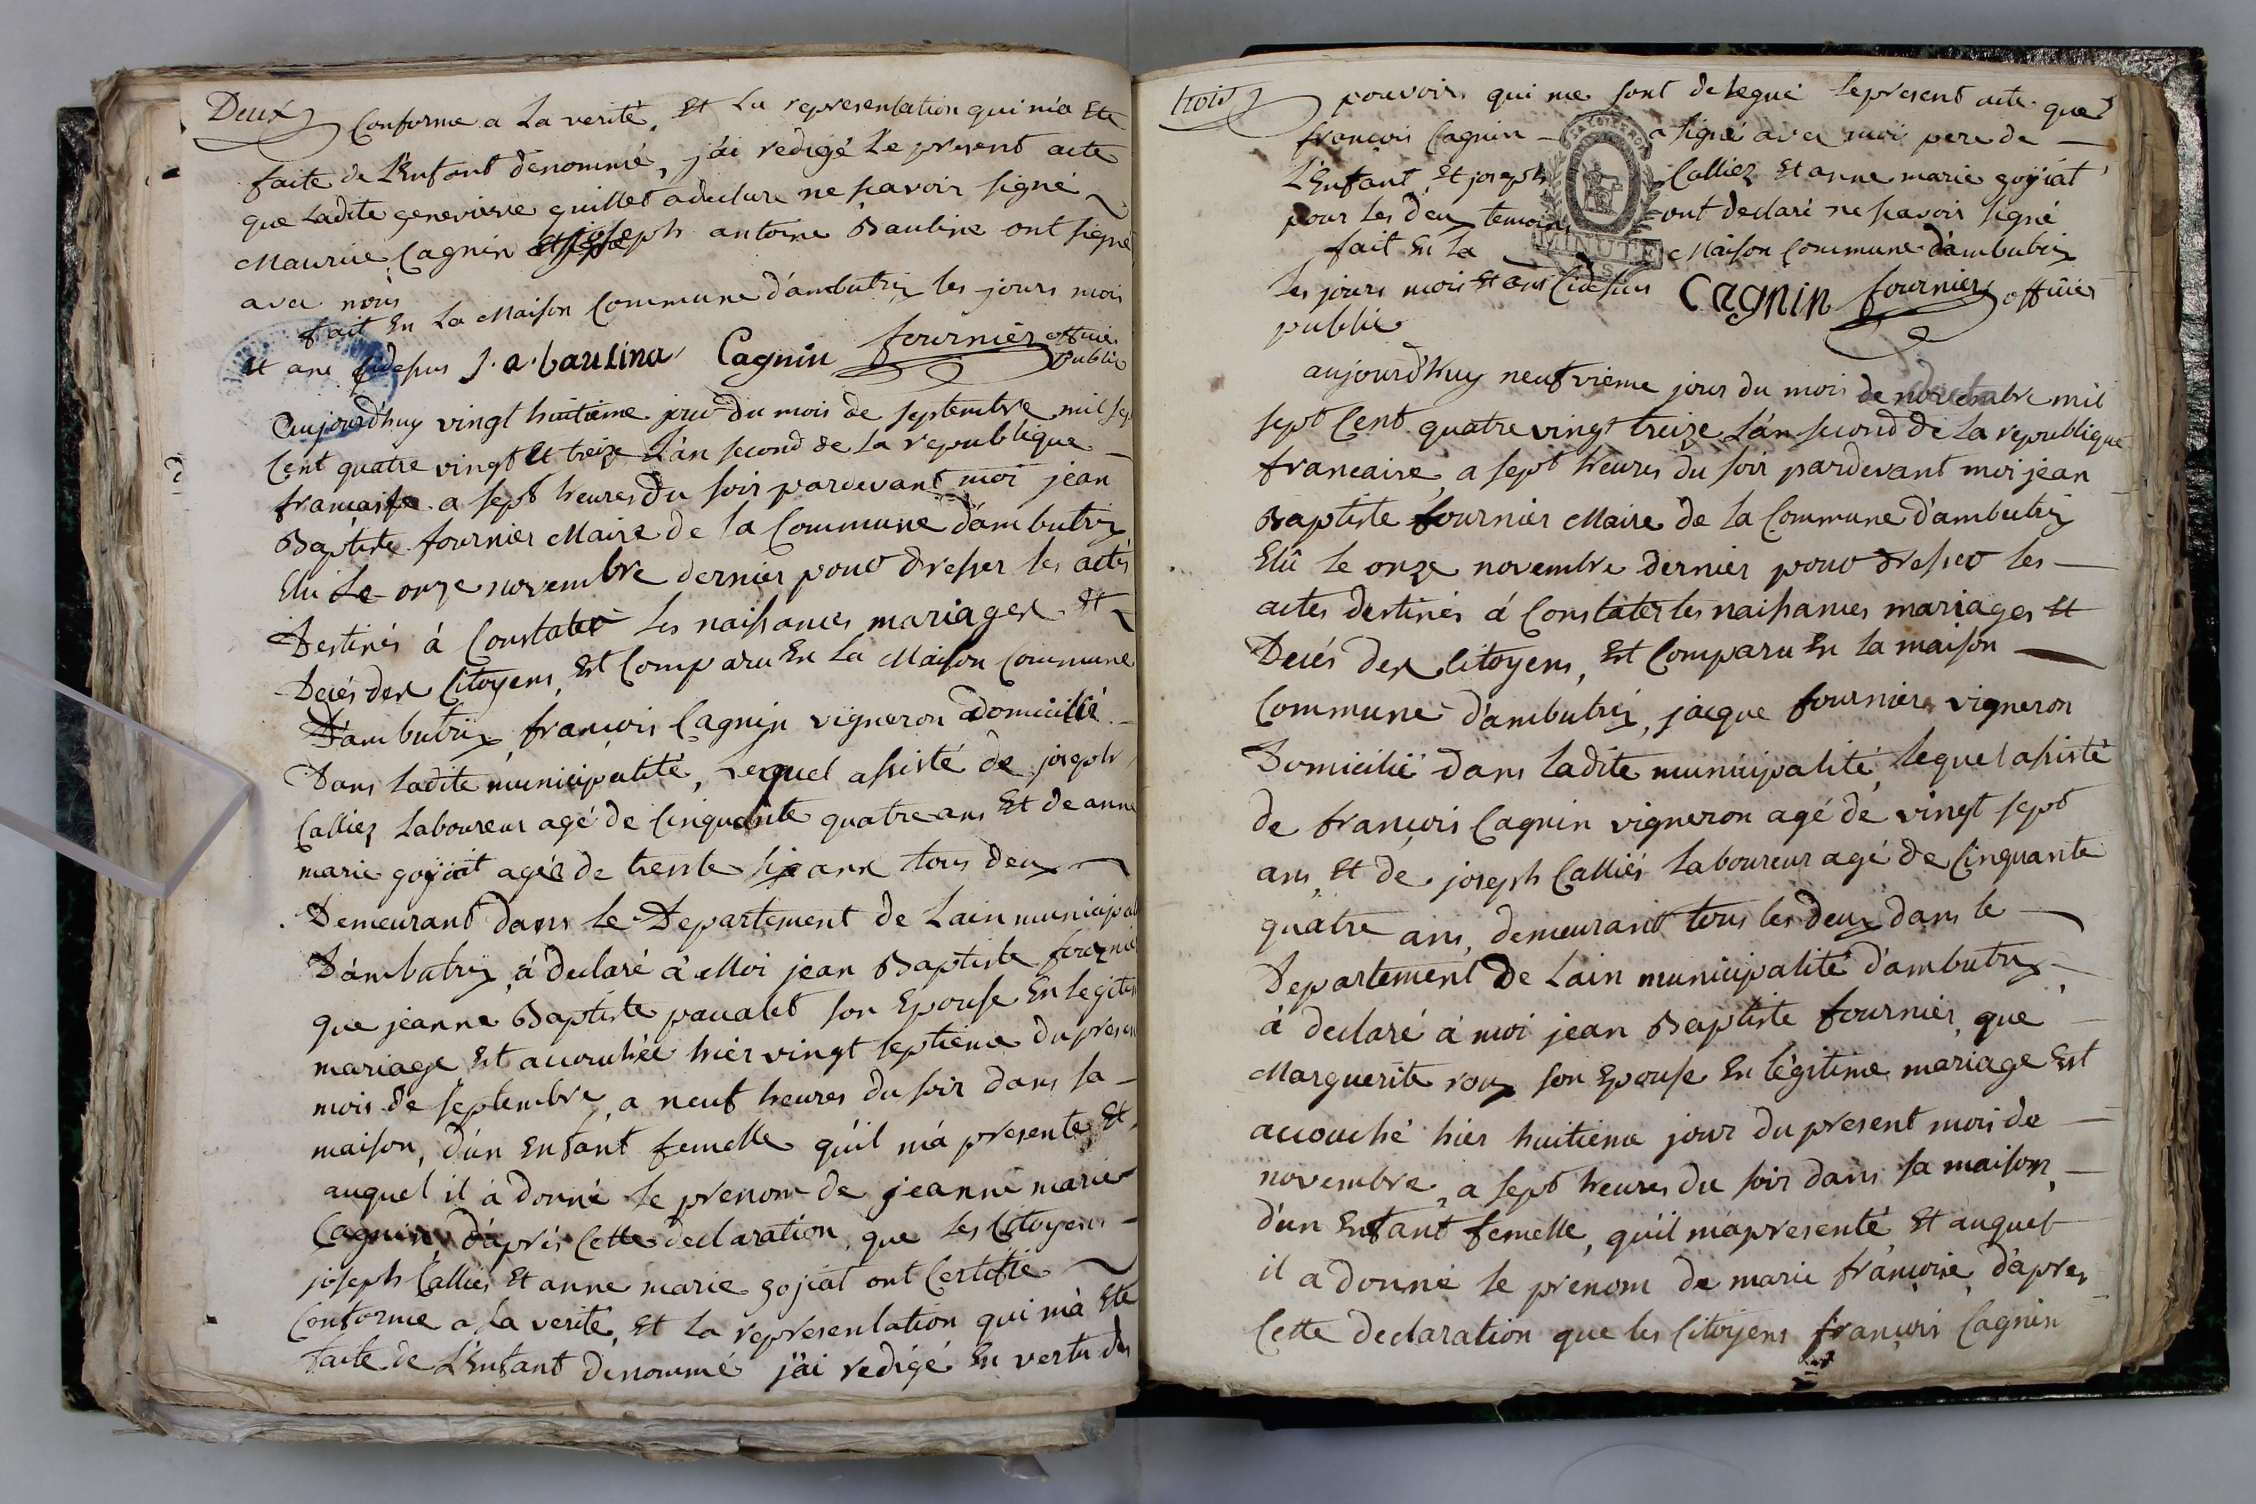 Deux
Conforme a La verité, Et La representation qui m'a Eté
faite de L'Enfant denommé, j'ai redigé Le present acte
que Ladite genevieve guillet a declare ne savoir signé
Maurice Cagnin joseph antoine Bauline ont signé
avec nous
fait En La Maison Commune d'ambutrix les jours mois
Et ans cidesus J. a. baulina Cagnin fournier officie
public
Aujourd'huy vingt huitieme jour du mois de septembre mil sep
Cent quatre vingt Et treize L'an second de la republique
francaise a sept heures du soir pardevant moi jean
Baptiste fournier Maire de la Commune d'ambutrix
Elu Le onze novembre dernier pour dresser les actes
Destinés à Constater Les naissances mariages Et
Decés des Citoyens, Est Comparu En La Maison Commune
D'ambutrix françois Cagnin vigneron domicilié
Dans Ladite municipalité, Lequel assisté de joseph
Calliez Laboureur agé de Cinquante quatre ans Et de anne
marie goyiat agée de trente six ans tous deux
Demeurant dans Le Departement de Lain municipal
D'ambutrix, à declaré à Moi jean Baptiste fournie
que jeanne Baptiste pavalet son Epouse En legitim
mariage Est accouchée hier vingt septieme du presen
mois de septembre, a neuf heures du soir dans sa
maison, d'un Enfant femelle qu'il m'a presenté Et
auquel il à donné le prenom de jeanne marie
Cagnin, d'après Cette declaration, que Les Citoyens
joseph Callies Et anne marie gojiat ont Certifié
Conforme a La verité, Et La representation qui m'a Eté
faite de L'Enfant denommé j'ai redigé En vertu des
trois
pouvoirs qui me sont delegué le present acte que
françois Cagnin a signé avec moi pere de
L'Enfant, Et joseph Calliez Et anne marie goyiat
pour Les deux temoins ont declaré ne savoir signé
fait En La Maison Commune d'ambutrix
Les jours mois Et ans Cidesus Cagnin fournier officier
public
MINUTE
aujourd'huy neufvieme jour du mois de novembre mil
sept Cent quatre vingt treize L'an second de La republique
francaise, a sept heures du soir pardevant moi jean
Baptiste fournier Maire de la Commune d'ambutrix
Elû le onze novembre dernier pour dresser les
actes destinés á Constater les naissances mariages Et
Decés des Citoyens, Est Comparu En la maison
Commune d'ambutrix, jacque fournier vigneron
Domicilié dans Ladite municipalité, Lequel assisté
de françois Cagnin vigneron agé de vingt sept
ans, Et de joseph Calliés Laboureur agé de Cinquante
quatre ans, demeurant tous les deux dans le
Departement de Lain municipalité d'ambutrix
à declaré à moi jean Baptiste fournier, que
Marguerite roux son Epouse En légitime mariage Est
accouché hier huitieme jour du present mois de
novembre, a sept heures du soir dans sa maison,
d'un Enfant femelle, qu'il m'apresenté Et auquel
il a donné le prenom de marie françoise, d'apres
Cette declaration que les Citoyens françois Cagnin